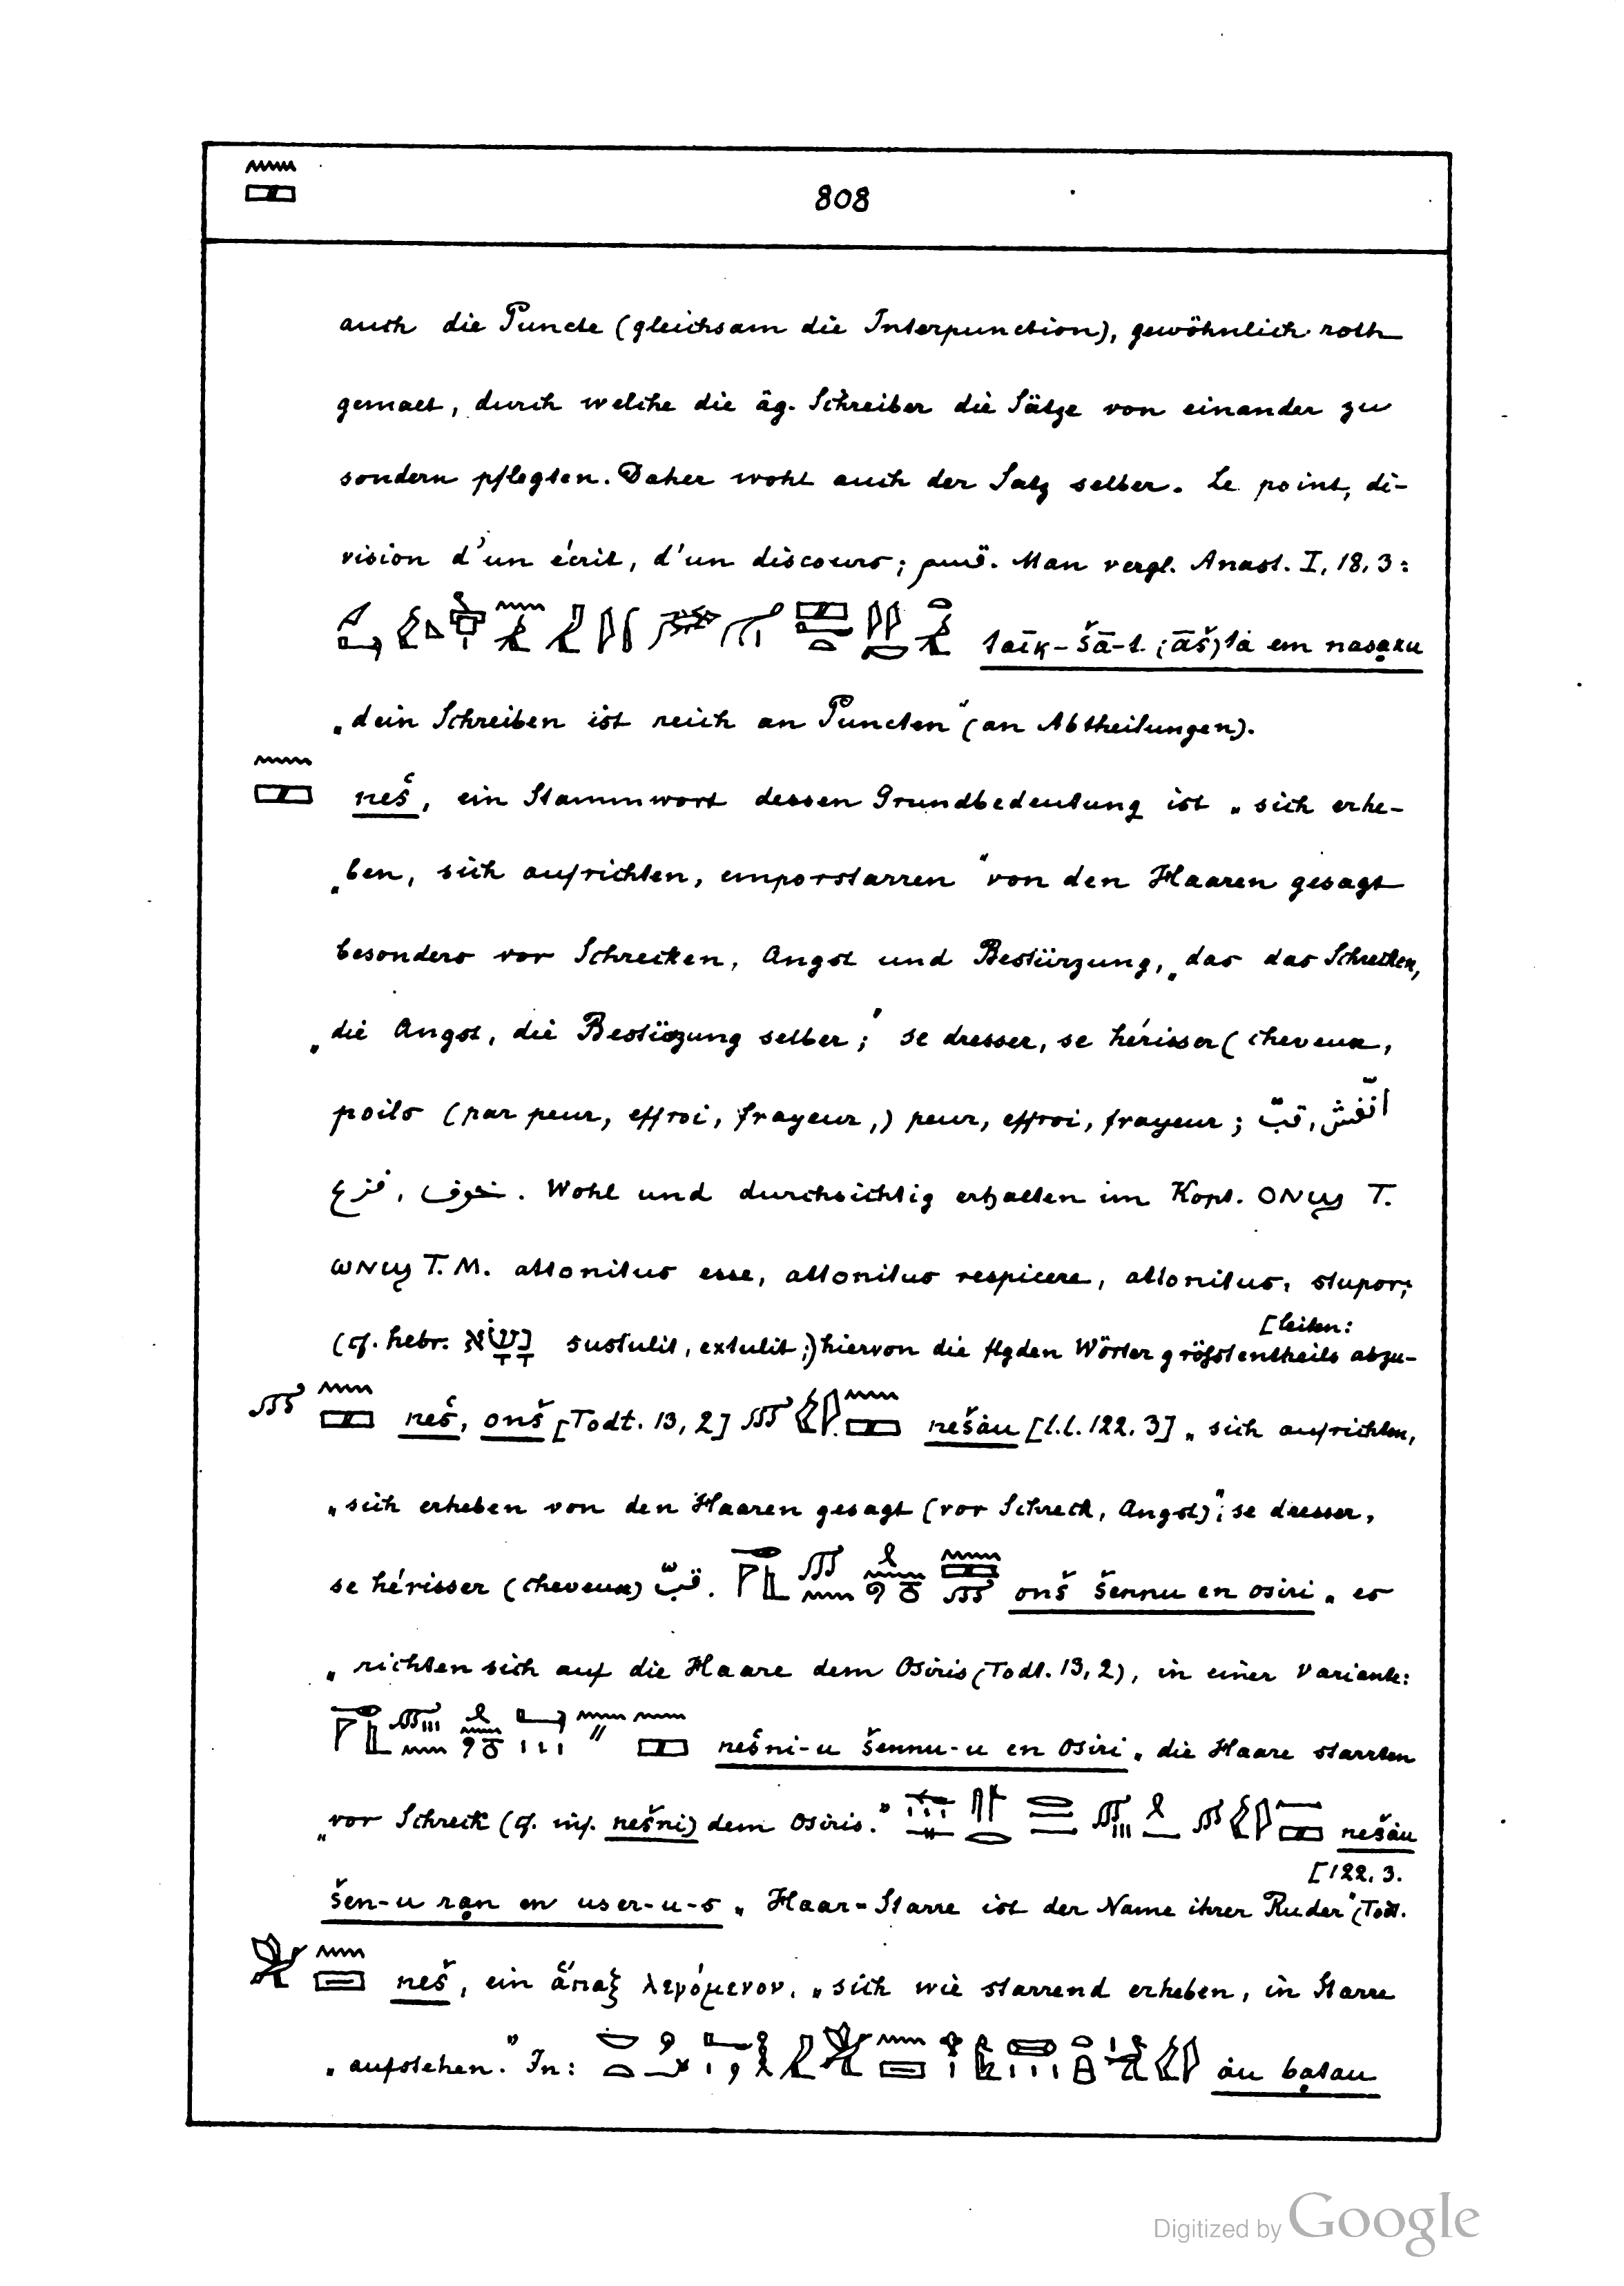 808
auch die Puncte (gleichsam die Interpunction), gewöhnlich roth
gemalt, durch welche die äg. Schreiber die Sätze von einander zu
sondern pflegten. Daher wohl auch der Satz selber. Le point, di-
vision d'un écrit, d'un discours; Man vergl. Anast. I, 18, 3:
em nasaku
„dein Schreiben ist reich an Puncten" (an Abtheilungen).
neš, ein Stammwort dessen Grundbedeutung ist „sich erhe-
„ben, sich aufrichten, emporstarren" von den Haaren gesagt
besonders vor Schrecken, Angst und Bestürzung, „das das Schrecken,
„die Angst, die Bestürzung selber;" se dresser, se hérisser (cheveux,
poils (par peur, effroi, frayeur,) peur, effroi, frayeur; قبّ ,
خوف , فزع. Wohl und durchsichtig erhalten im Kopt. ⲟⲛϣ T.
ⲱⲛϣ T. M. attonitus esse, attonitus respicere, attonitus, stupor;
(cf. hebr. נָשָׂא sustulit, extulit;) hiervon die flgden Wörter grösstentheils abzu-
[leiten:
neš, onš [Todt. 13, 2] nešȧu [l.l. 122, 3] „sich aufrichten,
„sich erheben von den Haaren gesagt (vor Schreck, Angst)"; se dresser,
se hérisser (cheveux) قبّ. onš šennu en osiri „es
„richten sich auf die Haare dem Osiris (Todt. 13, 2), in einer Variante:
nešni-u šennu-u en Osiri „die Haare starrten
„vor Schreck (cf. inf. nešni) dem Osiris." nešȧu
[122, 3.
šen-u ran en user-u-s „Haar-Starre ist der Name ihrer Ruder" (Todt.
neš, ein ἅπαξ λεγόμενον, „sich wie starrend erheben, in Starre
„aufstehen." In: ȧu batau
Digitized by Google